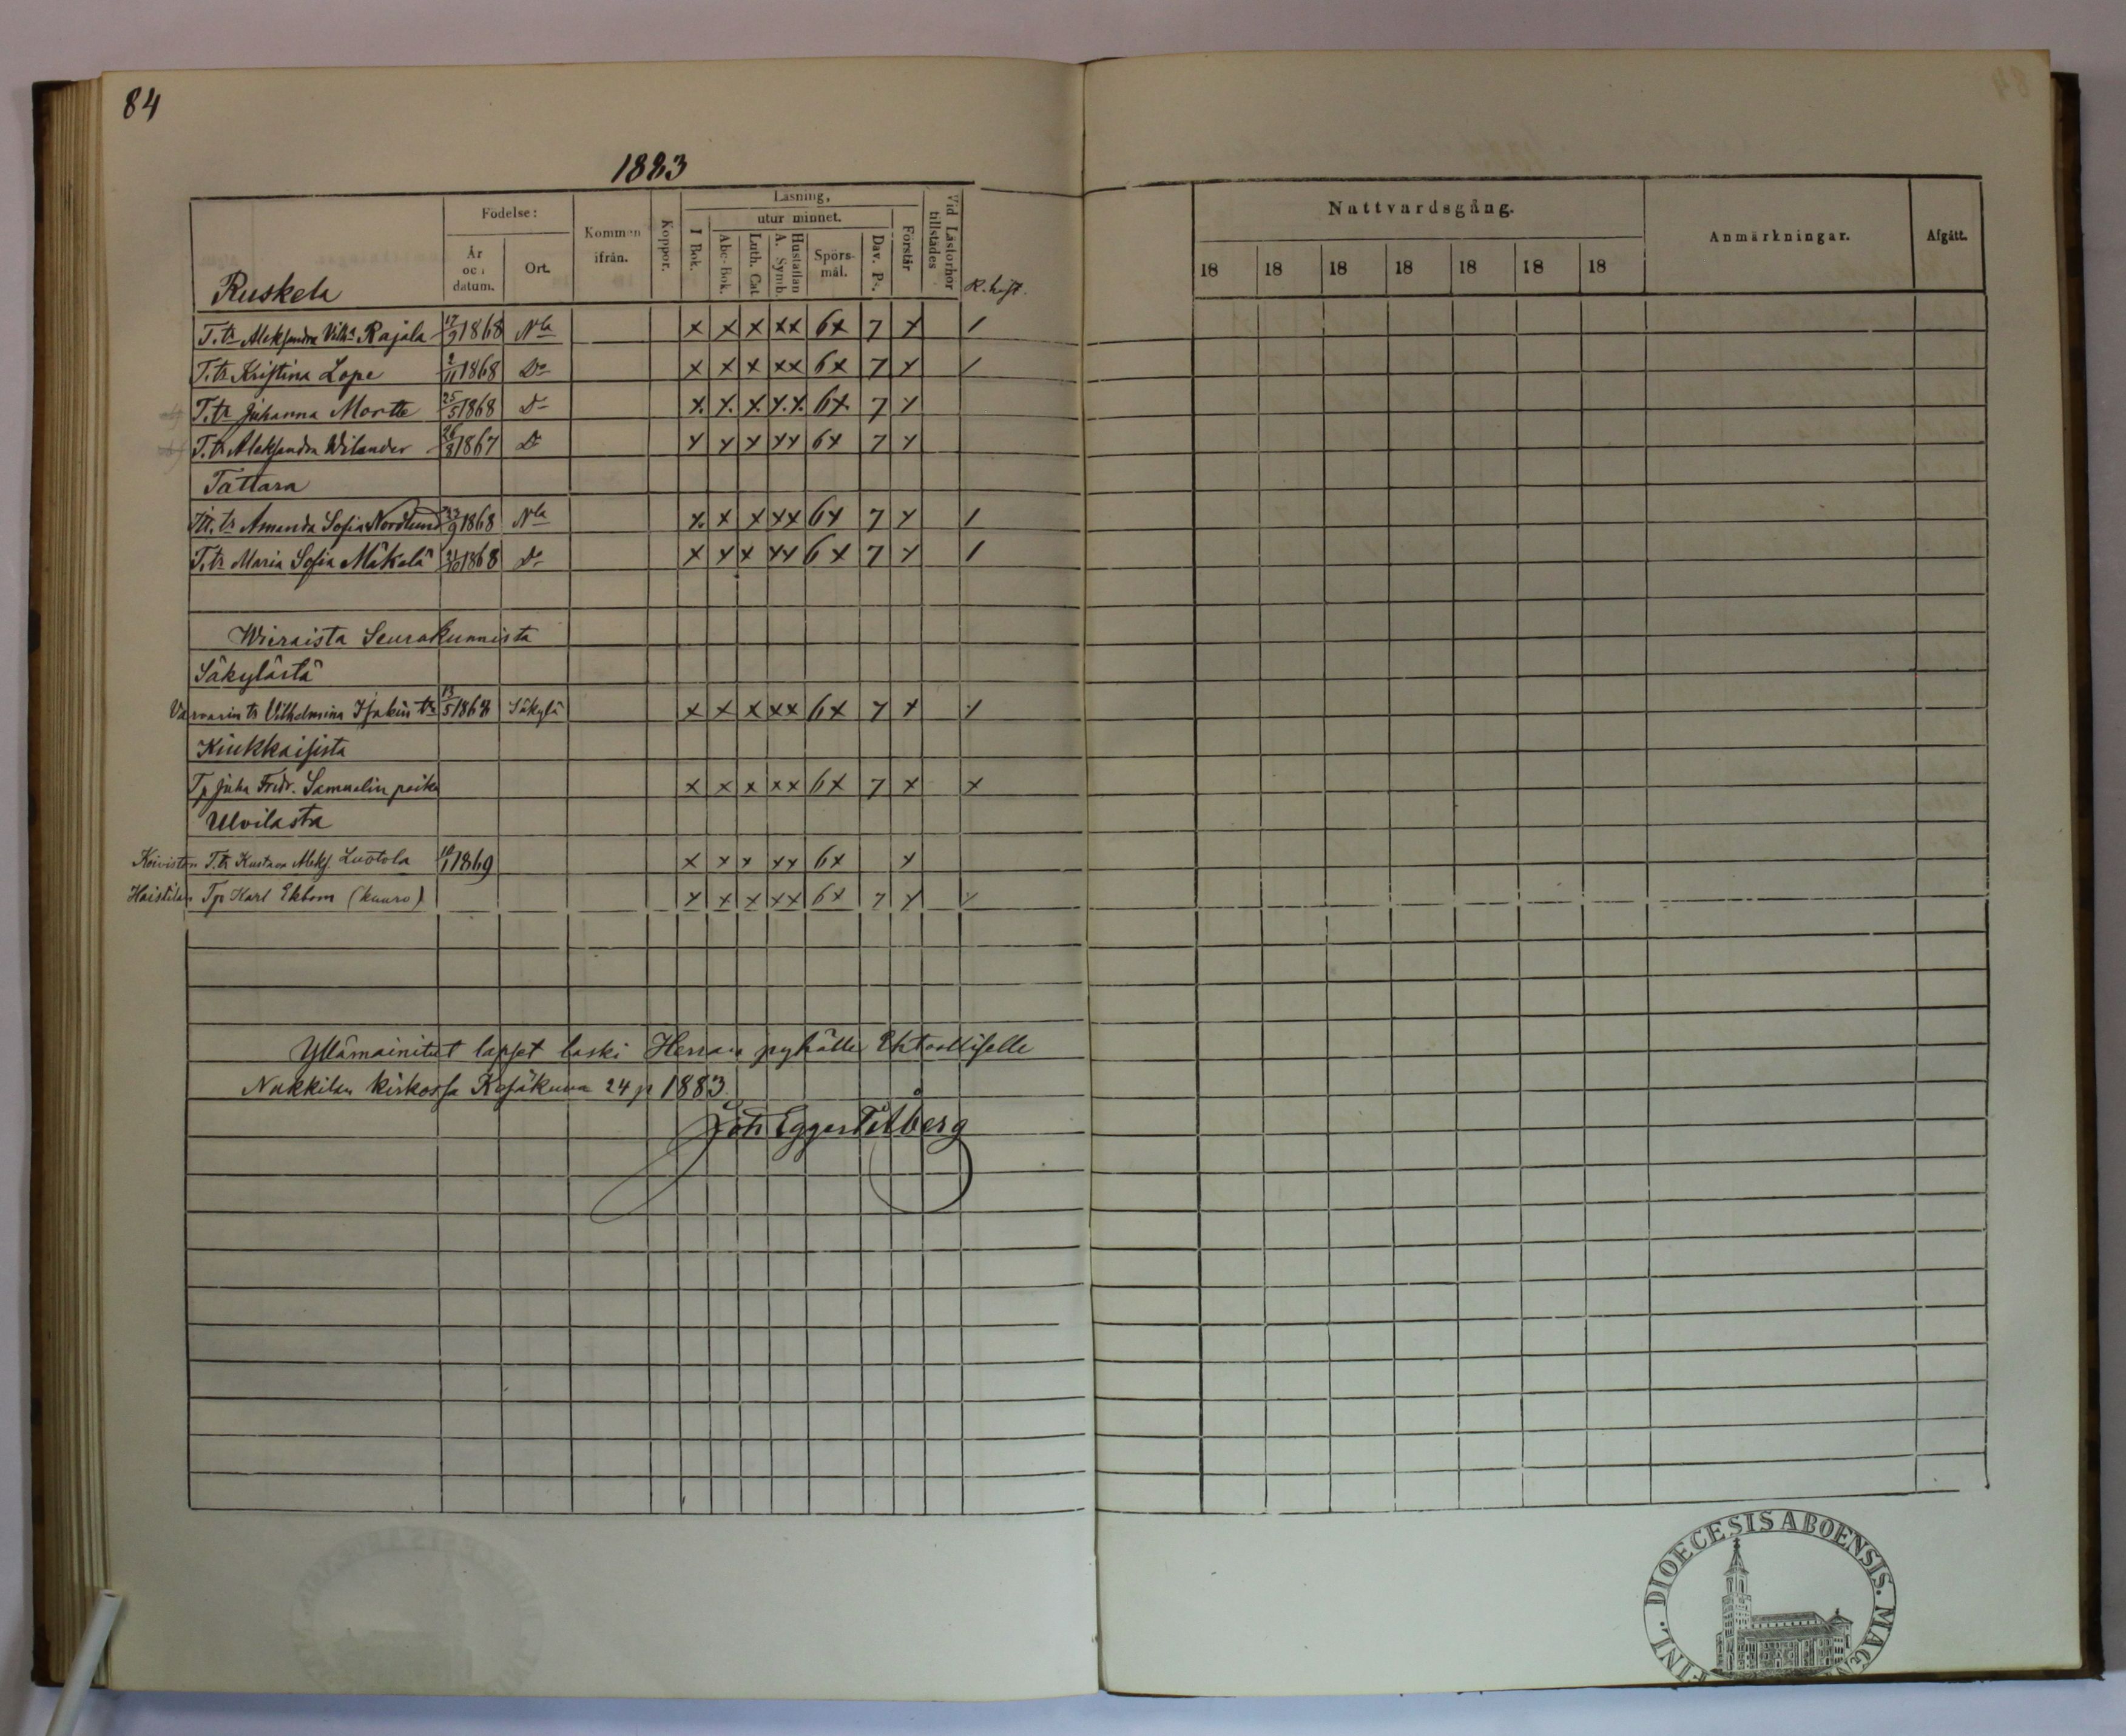 84
1883
Födelse:
Kommen ifrån.
Koppor.
Läsning,
utur minnet.
I Bok.
Abc-Bok.
Luth. Cat.
Hustaflan A. Symb.
Spörsmål.
Dav. Ps.
Förstår
Vid Läsförhör tillstädes
År och datum.
Ort.
Nattvardsgång.
Anmärkningar.
Afgått.
18 18 18 18 18 18 18
Ruskela
T. tr Aleksandra Vilh:a Rajala 17/9 1868 Nla x x x xx 6x 7 x /
T. tr Kristina Lope 2/11 1868 Do x x x xx 6x 7 x /
T. tr Juhanna Mortte 25/5 1868 D- x x x x.x. 6x 7 x
T. tr Aleksandra Wilander 26/8 1867 D- x x x xx 6x 7 x
Tattara
Itt. tr Amanda Sofia Nordlund 23/9 1868 Nla x x x xx 6x 7 x /
T. tr Maria Sofia Mäkelä 21/10 1868 D- x x x xx 6x 7 x /
Wieraista Seurakunnista
Säkylästä
Vilhelmina Isakin tr 13/5 1868 Säkylä x x x xx 6x 7 x x
Kiukkaisista
Tp Juha Fredr. Samuelin poika x x x xx 6x 7 x x
Ulvilasta
Koiviston T. tr Kustaa Aleks. Luotola 10/1 1869 x x x xx 6x x
Haistilan Tp Karl Ekbom (kuuro) x x x xx 6x 7 x x
Yllämainitut lapset laski Herran pyhälle Ehtoolliselle
Nakkilan kirkossa Kesäkuun 24 p 1883.
Joh Eggert Fåberg
FINL. DIOECESIS ABOENSIS. MAGN